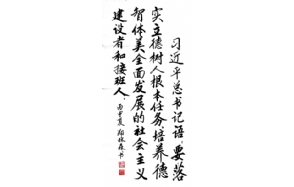 习近平总书记语:要落
实立德树人根本任务培养德
智体美全面发展的社会主义
建设者和接班人